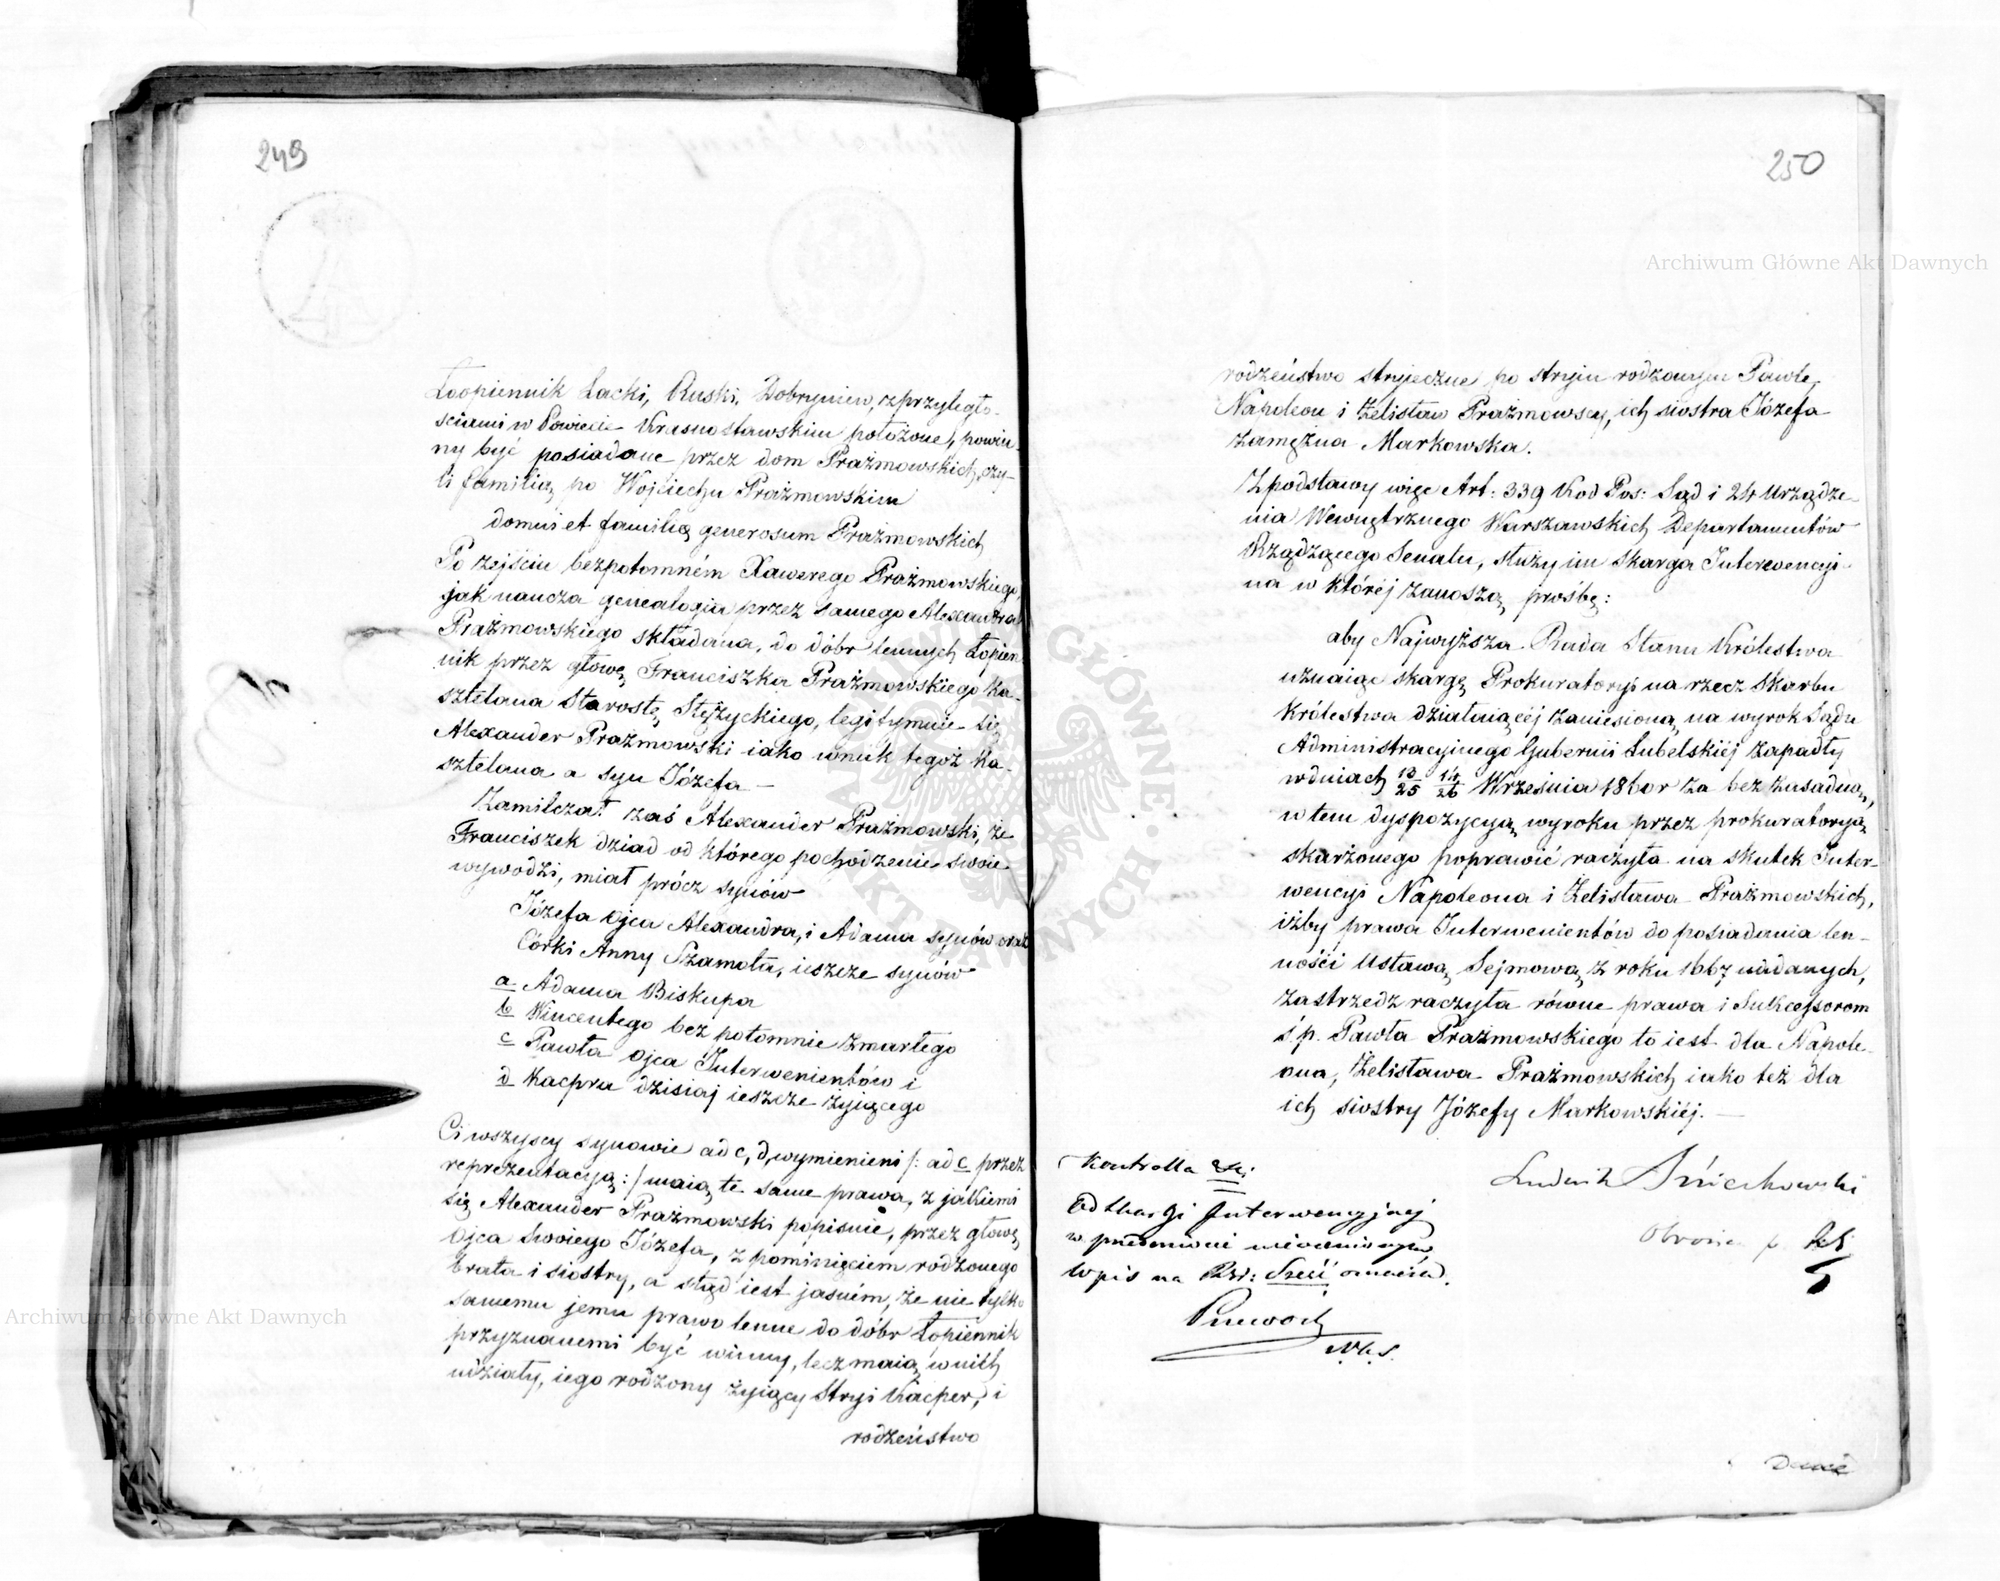 249
Łopiennik Lacki, Ruski, Dobryniew, z przyległo-
sciami w Powiecie Krasnostawskim położone, powin-
ny być posiadane przez dom Prażmowskich, czy-
li familią po Wojciechu Prażmowskim
domus et familię generosum Prażmowskich
Po zejściu bezpotomném Xawerego Prażmowskiego,
jak naucza genealogia przez samego Alexandra
Prażmowskiego składana, do dóbr lennych Łopien-
nik przez głowę Franciszka Prażmowskiego Ka-
sztelana Starostę Stężyckiego, legitymuie się
Alexander Prażmowski iako wnuk tegoż Ka-
sztelana a syn Józefa —
Zamilczał zaś Alexander Prażmowski, że
Franciszek dziad od którego pochodzenie swoie
wywodzi, miał prócz synów
Józefa ojca Alexandra, i Adama synów oraz
Córki Anny Szamota, ieszcze synów
a Adama Biskupa
b Wincentego bez potomnie zmarłego
c Pawła ojca Interwenientów i
d Kacpra dzisiaj ieszcze żyiącego
Ci wszyscy synowie ad c, d, wymienieni /: ad c przez
reprezentacyą :/ maią te same prawa, z jakiemi
się Alexander Prażmowski popisuie, przez głowę
Ojca swoiego Józefa, z pominięciem rodzonego
brata i siostry, a stąd iest jasném, że nie tylko
samemu jemu prawo lenne do dóbr Łopiennik
przyznanemi być winny, lecz maią w nich
udziały, iego rodzony żyiący Stryi Kacper, i
rodzeństwo
250
rodzeństwo stryieczne po stryiu rodzonym Pawle,
Napoleon i Żelisław Prażmowscy, ich siostra Józefa
zamężna Markowska.
Z podstawy więc Art: 339 Kod Pos: Sąd i 24 Urządze-
nia Wewnętrznego Warszawskich Departamentów
Rządzącego Senatu, służy im skarga Interwencyi-
na w któréj zanoszą prośbę:
aby Najwyższa Rada Stanu Królestwa
uznaiąc skargę Prokuratoryi na rzecz Skarbu
Królestwa działaiącéj zaniesioną na wyrok Sądu
Administracyjnego Gubernii Lubelskiéj zapadły
w dniach 13/25 14/26 Września 1860 r za bez zasadną,
w tem dyspozycyą wyroku przez prokuratoryą
skarżonego poprawić raczyła na skutek Inter-
wencyi Napoleona i Żelisława Prażmowskich,
iżby prawa Interwenientów do posiadania len-
ności Ustawą Sejmową z roku 1667 nadanych,
zastrzedz raczyła równe prawa i Sukcessorom
ś. p. Pawła Prażmowskiego to iest dla Napole-
ona, Żelisława Prażmowskich iako też dla
ich siostry Józefy Markowskiéj. —
Kontrolla
Od skargi Interwencyjnej
w
Wpis na Rsr: Sześć
Ludwik
Obrońca p.
Archiwum Główne Akt Dawnych
Archiwum Główne Akt Dawnych
ARCHIWUM GŁÓWNE AKT DAWNYCH